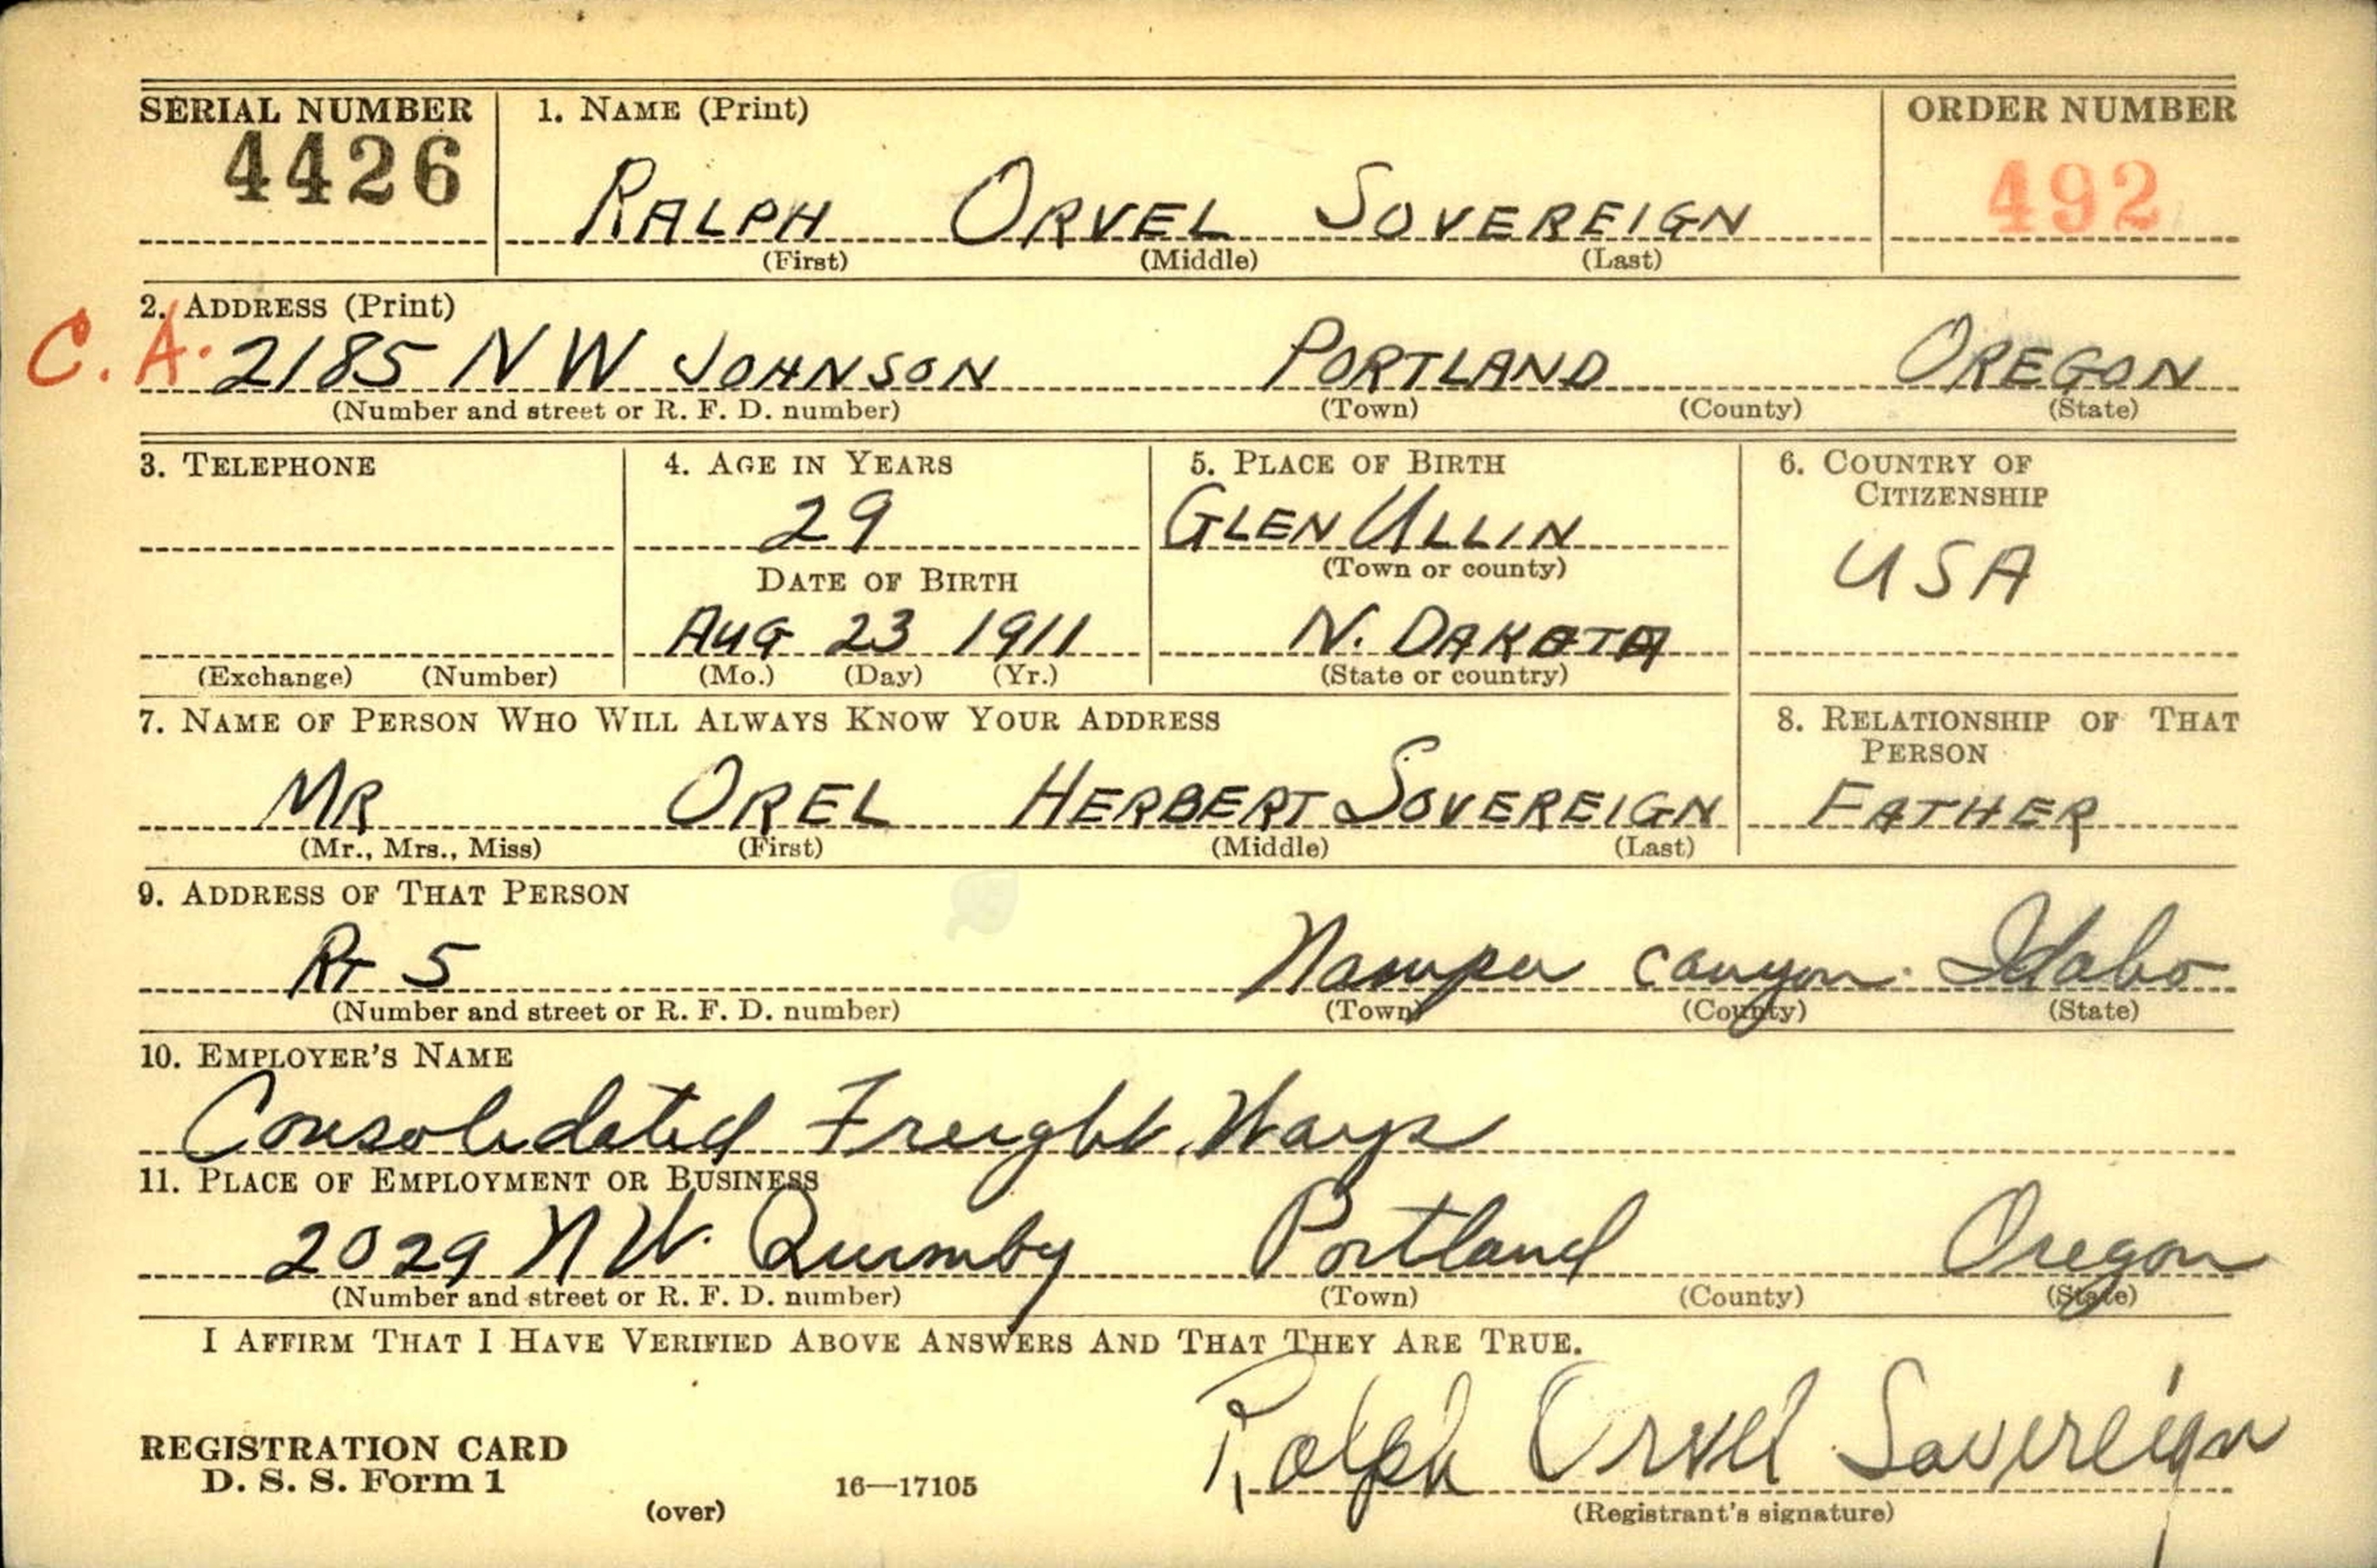 SERIAL NUMBER 1. NAME (Print) ORDER NUMBER
4426 RALPH ORVEL SOVEREIGN 492
(First) (Middle) (Last)
2. ADDRESS (Print)
C. A. 2185 N W JOHNSON PORTLAND OREGON
(Number and street or R. F. D. number) (Town) (County) (State)
3. TELEPHONE 4. AGE IN YEARS 5. PLACE OF BIRTH 6. COUNTRY OF
CITIZENSHIP
29 GLEN ULLIN USA
DATE OF BIRTH (Town or county)
AUG 23 1911 N. DAKOTA
(Exchange) (Number) (Mo.) (Day) (Yr.) (State or country)
7. NAME OF PERSON WHO WILL ALWAYS KNOW YOUR ADDRESS 8. RELATIONSHIP OF THAT
PERSON
MR OREL HERBERT SOVEREIGN FATHER
(Mr., Mrs., Miss) (First) (Middle) (Last)
9. ADDRESS OF THAT PERSON
RT 5 Nampa Canyon Idaho
(Number and street or R. F. D. number) (Town) (County) (State)
10. EMPLOYER'S NAME
Consolidated Freight Ways
11. PLACE OF EMPLOYMENT OR BUSINESS
2029 N W. Quimby Portland Oregon
(Number and street or R. F. D. number) (Town) (County) (State)
I AFFIRM THAT I HAVE VERIFIED ABOVE ANSWERS AND THAT THEY ARE TRUE.
Ralph Orvel Sovereign
REGISTRATION CARD
D. S. S. Form 1 16—17105
(over) (Registrant's signature)